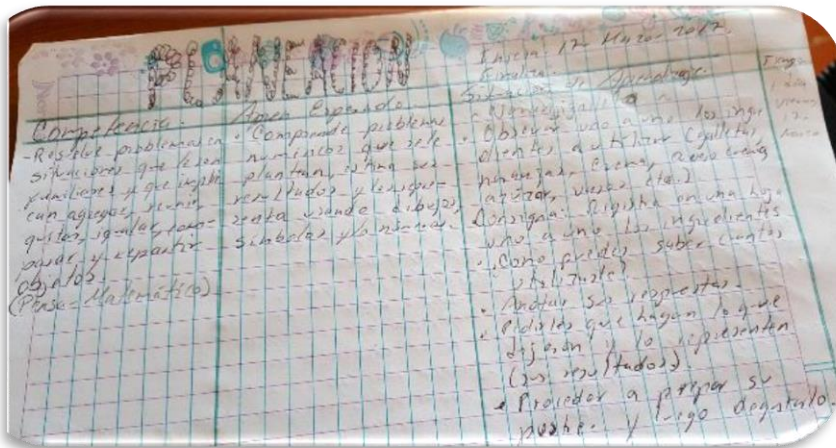 PLANEACIÓN
Competencia.
-Resuelve problemas en
situaciones que le son
familiares y que impli
can agregar, reunir
quitar, igualar, com
parar y repartir
objetos.
(Pens. Matemático)
Apren Esperado
• Comprende problemas
numéricos que se le
plantean, estima sus
resultados y los repre-
senta usando dibujos,
símbolos y/o números.
Inicia: 17 Marzo 2017.
Finaliza:
Situación de Aprendizaje.
• Observar uno a uno los ingre
dientes a utilizar (galletas,
naranjas, crema,
azúcar, vasos etc.)
Consigna: Registra en una hoja
uno a uno los ingredientes
• ¿Cómo puedes saber cuántos
utilizaste?
• Anotar sus respuestas.
• Pedirles que hagan lo que
dijeron y lo representen
(sus resultados).
• Proceder a su
postre. y luego degustarlo.
1 día
viernes
17
Marzo